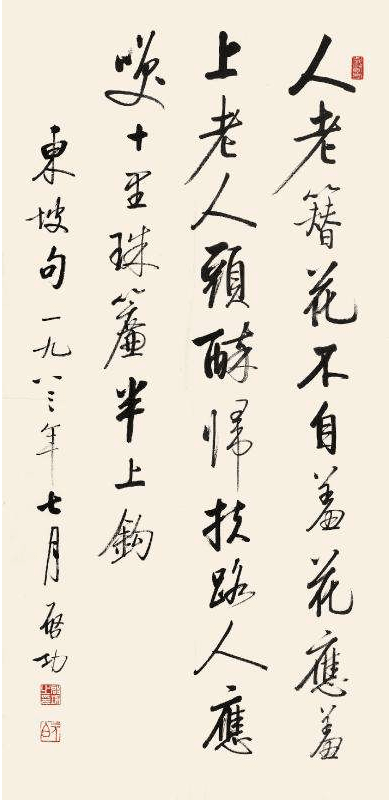 人老簪花不自羞花應羞
上老人頭醉歸扶路人應
笑十里珠簾半上鈎
東坡句一九八三年七月啓功